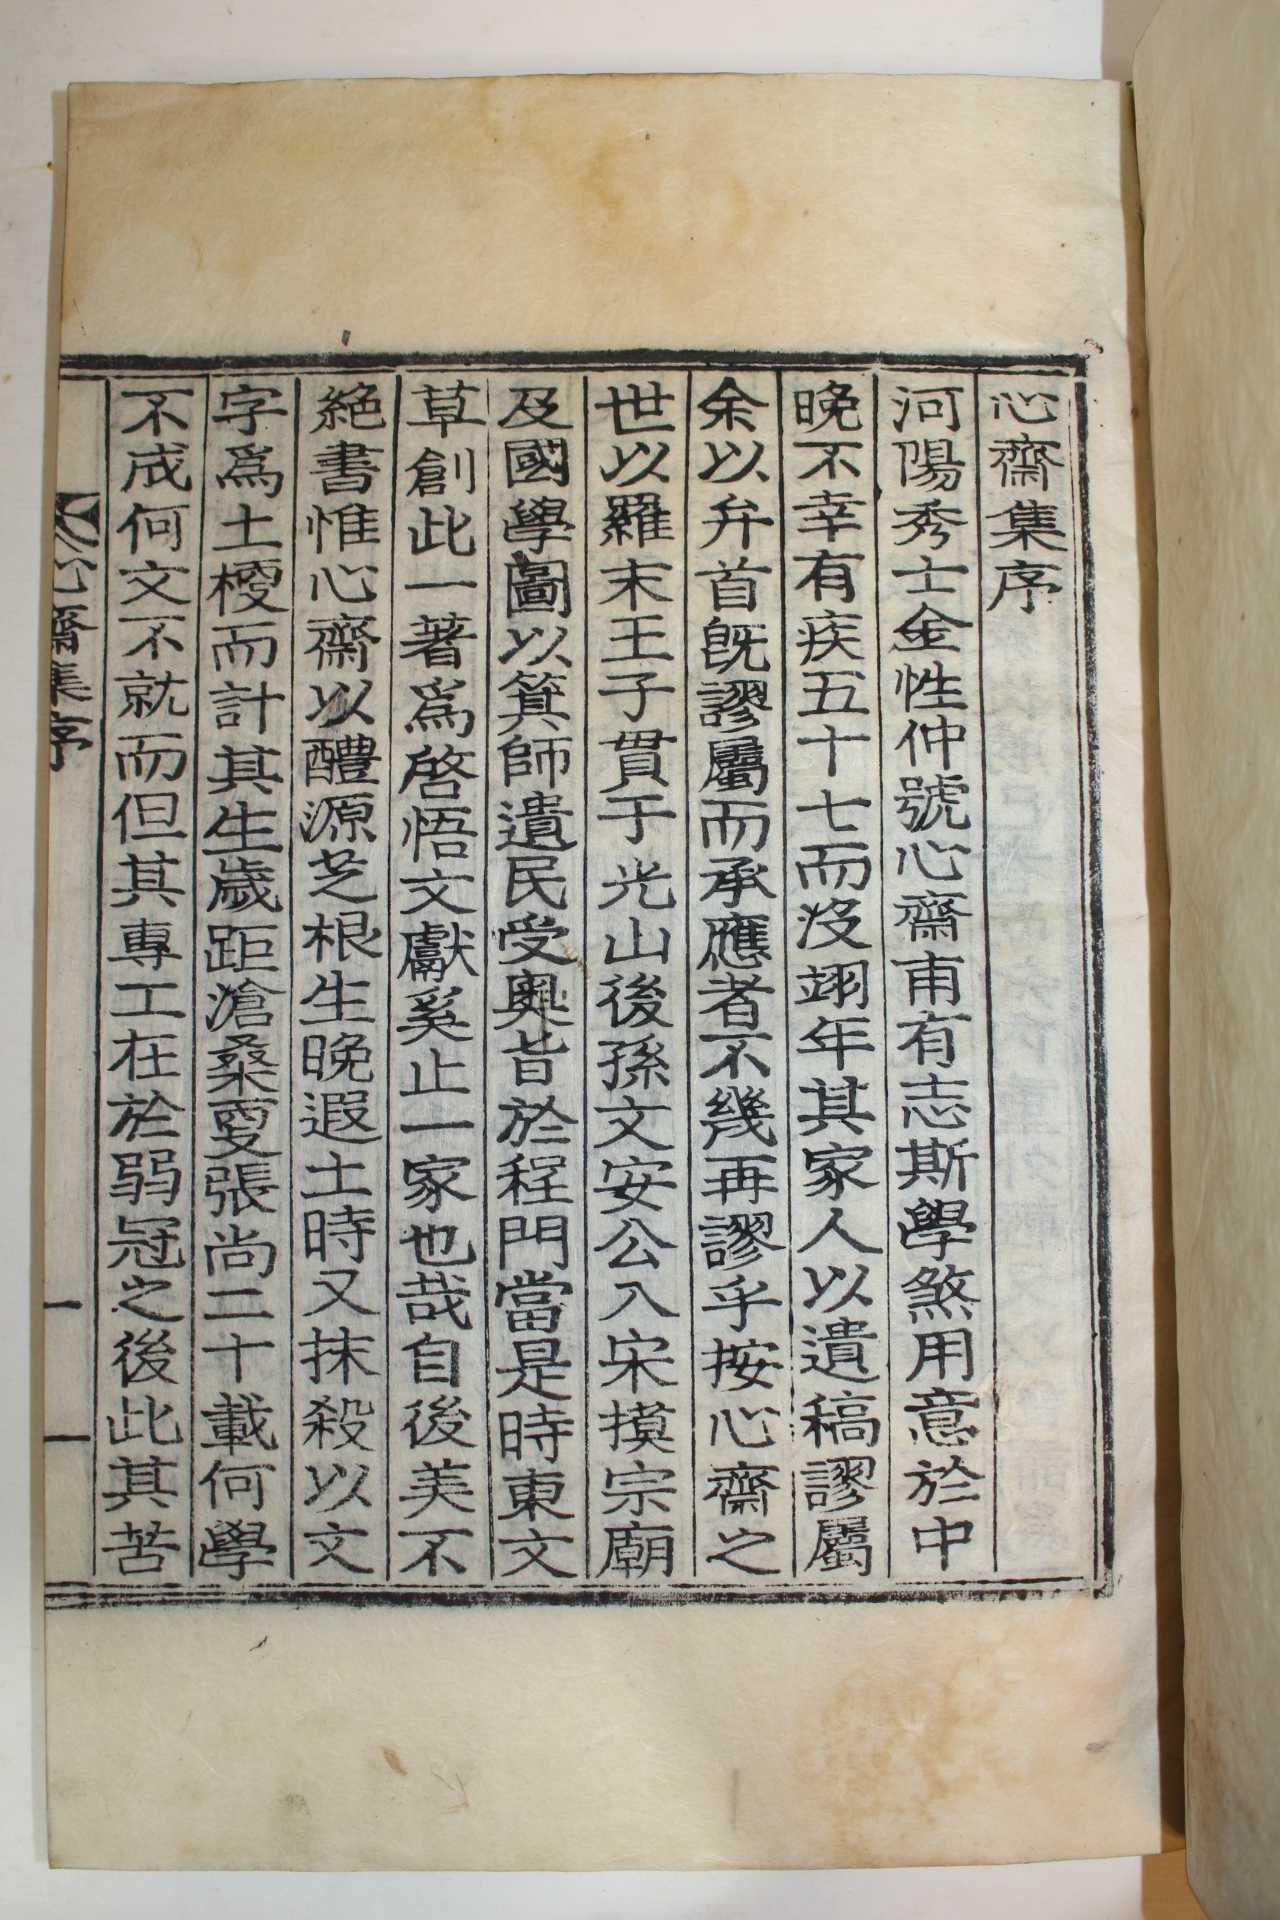 心齋集序
河陽秀士金性仲號心齋甫有志斯學煞用意於中
晚不幸有疾五十七而沒翊年其家人以遺稿謬屬
余以弁首旣謬屬而承應者不幾再謬乎按心齋之
世以羅末王子貫于光山後孫文安公入宋摸宗廟
及國學圖以箕師遺民受奧旨於程門當是時東文
草創此一著爲啓悟文獻奚止一家也哉自後美不
絕書惟心齋以醴源芝根生晚遐土時又抹殺以文
字爲土梗而計其生歲距滄桑夏張尙二十載何學
不成何文不就而但其專工在於弱冠之後此其苦
心齋集序
一